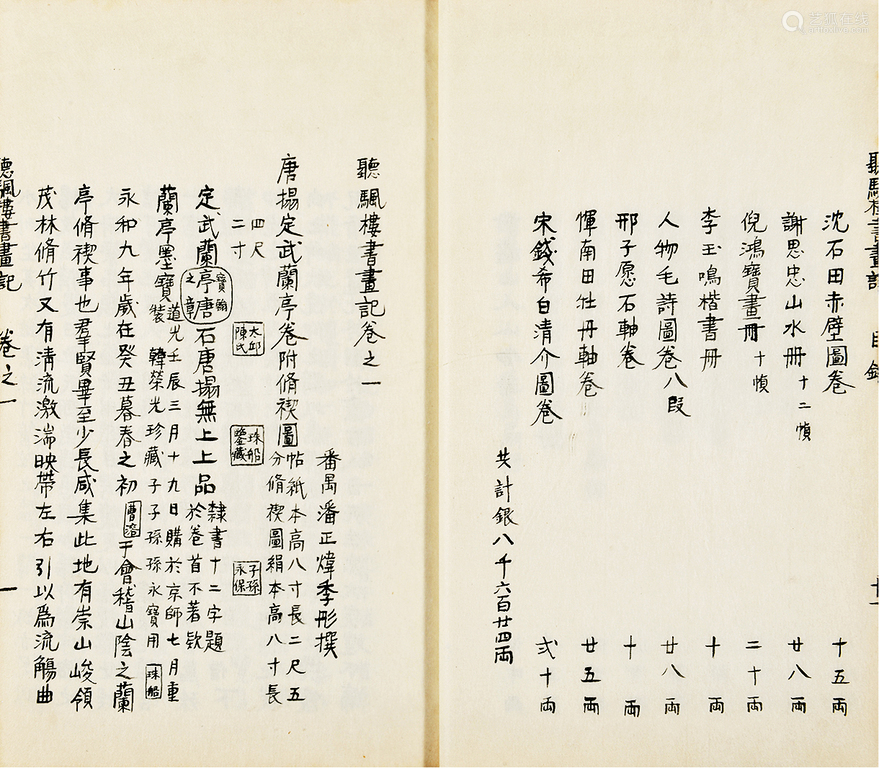 聽颿樓書畫記 目錄
沈石田赤壁圖卷 十五兩
謝思忠山水冊 十二幀 廿八兩
倪鴻寶畫冊 十幀 二十兩
李玉鳴楷書冊 十兩
人物毛詩圖卷八段 廿八兩
邢子愿石軸卷 十兩
惲南田牡丹軸卷 廿五兩
宋錢希白清介圖卷 弍十兩
共計銀八千六百廿四兩
聽颿樓書畫記卷之一
番禺潘正煒季彤撰
唐搨定武蘭亭卷附脩禊圖 帖紙本高八寸長二尺五
分脩禊圖絹本高八寸長
四尺
二寸
大邱陳氏
珠船鑒藏
子孫永保
定武蘭亭唐石唐搨無上上品 隸書十二字題
於卷首不著欵
寶翰之章
蘭亭墨寶 道光壬辰三月十九日購於京師七月重
裝 韓榮光珍藏子子孫孫永寶用
珠船
永和九年歲在癸丑暮春之初于會稽山陰之蘭
亭脩禊事也羣賢畢至少長咸集此地有崇山峻領
茂林脩竹又有清流激湍映帶左右引以為流觴曲
聽颿樓書畫記 卷之一 一